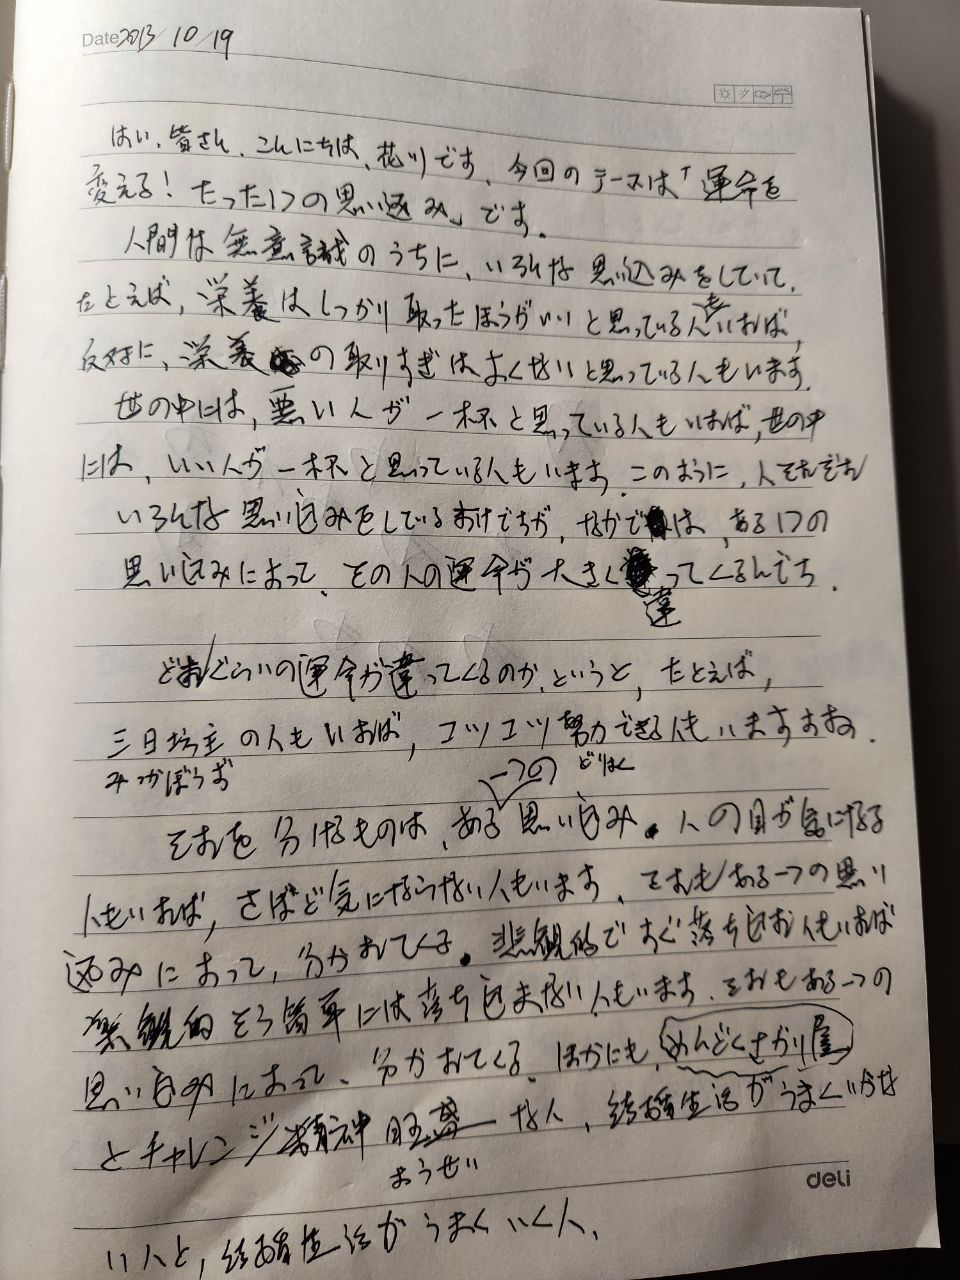 Date 2013/10/19
はい、皆さん、こんにちは、花川です、今回のテーマは「運命を
変える！たった1つの思い込み」です。
人間は無意識のうちに、いろんな思い込みをしていて、
たとえば、栄養はしっかり取ったほうがいいと思っている人もいれば、
反対に、栄養の取りすぎはよくないと思っている人もいます。
世の中には、悪い人が一杯と思っている人もいれば、世の中
には、いい人が一杯と思っている人もいます。このように、人それぞれ
いろんな思い込みをしているわけでちが、なかでは、ある1つの
思い込みによって、その人の運命が大きく違ってくるんでち。
どれぐらいの運命が違ってくるのか、というと、たとえば、
三日坊主の人もいれば、コツコツ努力できる人もいますよね。
みっかぼうず
どりょく
それを分けるものは、ある一つの思い込み。人の目が気になる
人もいれば、さほど気にならない人もいます、それもある一つの思い
込みによって、分かれてくる。悲観的ですぐ落ち込む人もいれば
楽観的そう簡単には落ち込まない人もいます、それもある一つの
思い込みによって、分かれてくる、ほかにも、めんどくさがり屋
とチャレンジ精神旺盛な人、結婚生活がうまくいかな
おうせい
い人と、結婚生活がうまくいく人、
deli